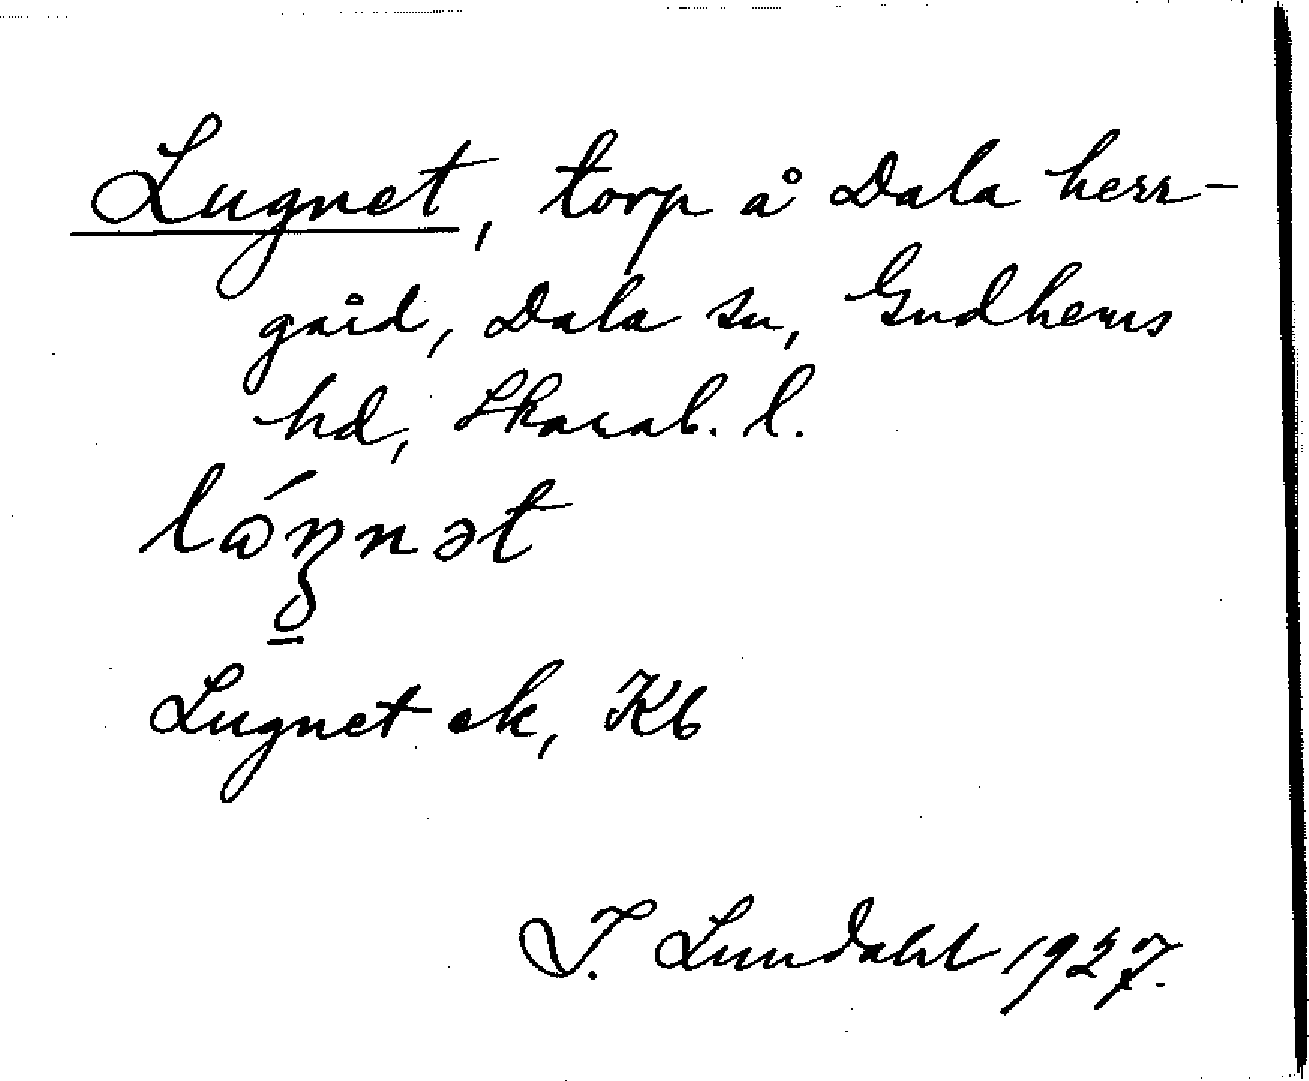 Lugnet, torp å Dala herr-
gård, Dala sn, Gudhems
hd, Skarab. l.
lɷ́ŋnət
Lugnet ek, Kb
I. Lundahl 1927.